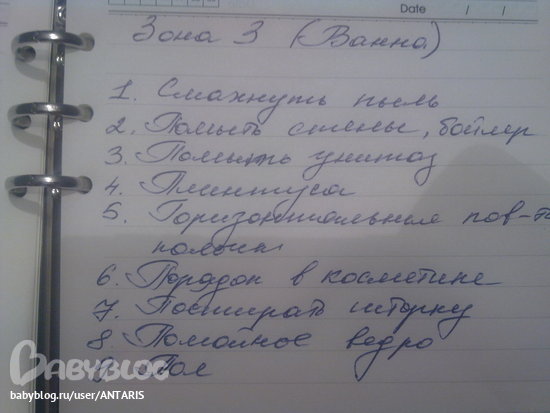 Date / /
Зона 3 (Ванна)
1. Смахнуть пыль
2. Помыть стены, бойлер
3. Помыть унитаз
4. Плинтуса
5. Горизонтальные пов-ти
полочки
6. Порядок в косметике
7. Постирать шторку
8. Помойное ведро
9. Пол
BABYBLOG
babyblog.ru/user/ANTARIS